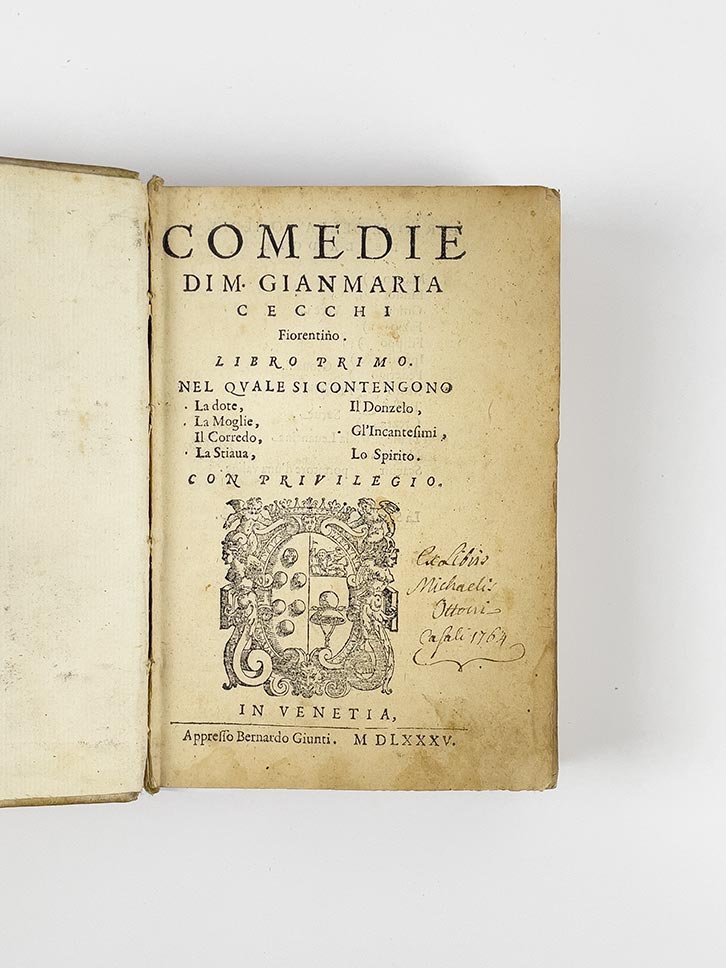 COMEDIE
DI M. GIANMARIA
CECCHI
Fiorentino.
LIBRO PRIMO.
NEL QVALE SI CONTENGONO
La dote,
La Moglie,
Il Corredo,
La Stiaua,
Il Donzelo,
Gl'Incanteſimi,
Lo Spirito.
CON PRIVILEGIO.
Ex Libris
Michaelis
Casali 1764
IN VENETIA,
Appreſſo Bernardo Giunti. M DLXXXV.